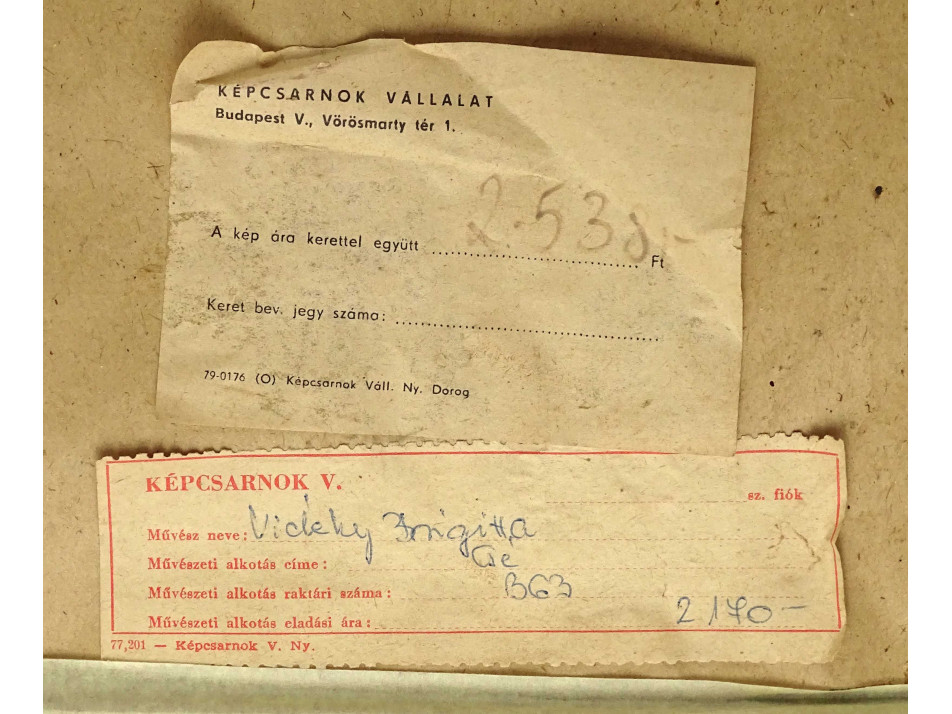 KÉPCSARNOK VÁLLALAT
Budapest V., Vörösmarty tér 1.
A kép ára kerettel együtt 2.538.- Ft
Keret bev. jegy száma:
79-0176 (O) Képcsarnok Váll. Ny. Dorog
KÉPCSARNOK V.
sz. fiók
Művész neve: Brigitta
Művészeti alkotás címe:
Művészeti alkotás raktári száma: B63
Művészeti alkotás eladási ára: 2170-
77,201 — Képcsarnok V. Ny.